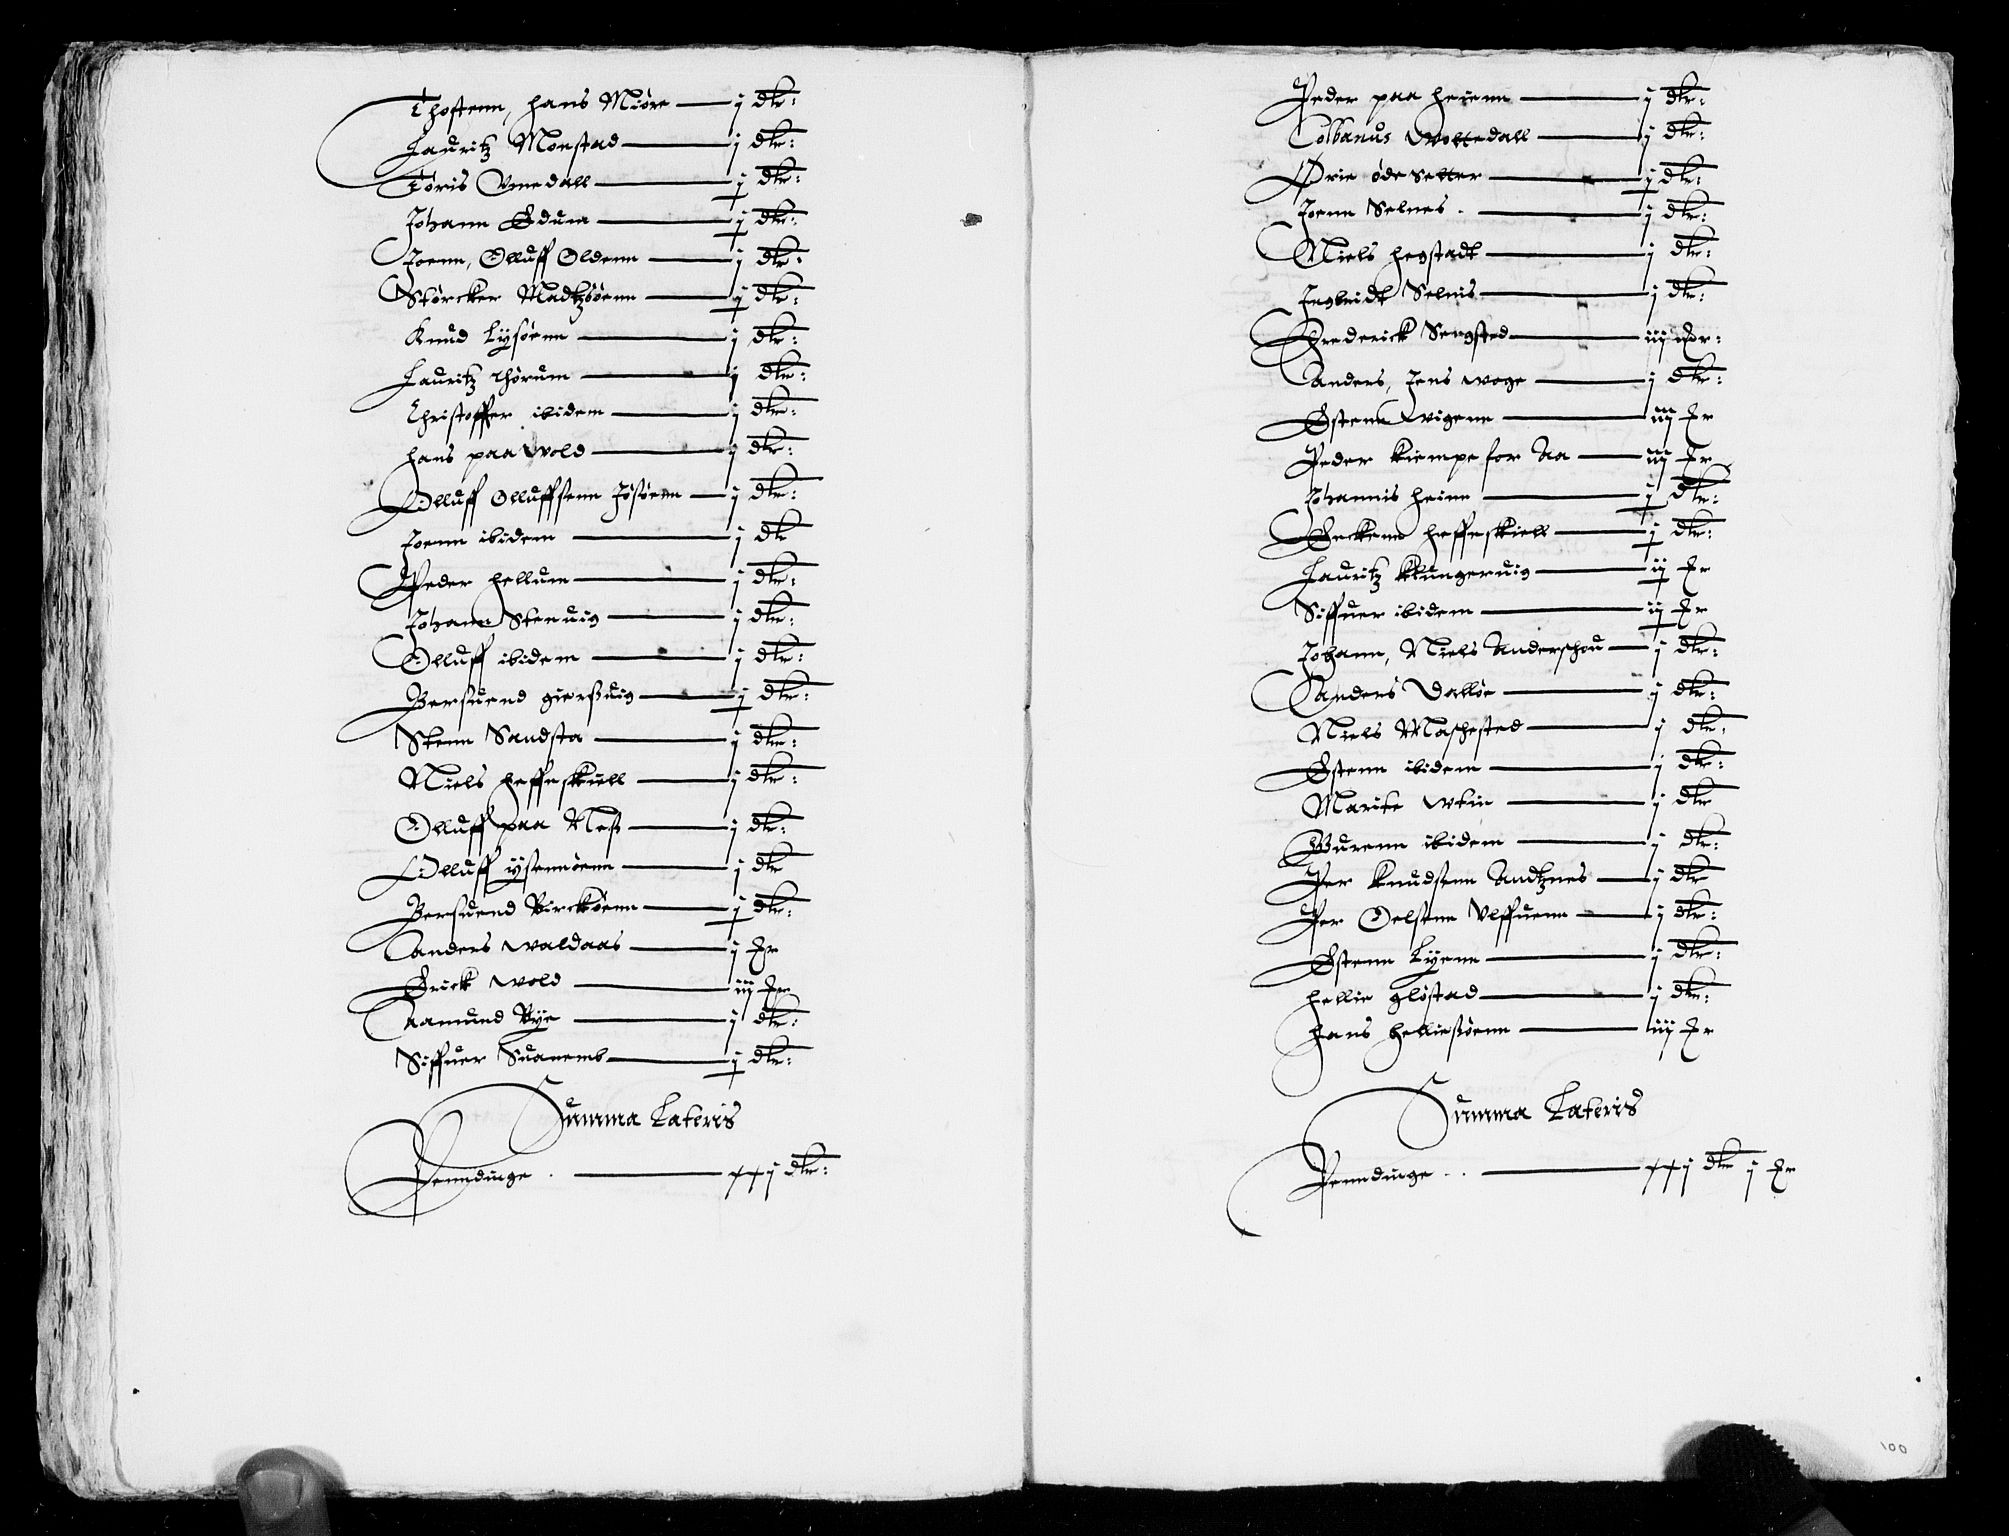 Thostenn, Hans Miøre — j dlr:
Lauritz Monstad — j dlr:
Toris Vmedall — j dlr:
Johann Edum — j dlr:
Joenn, Olluff Oldenn — j dlr:
Størcker Madtzsøenn — j dlr:
Knud Lysøenn — j dlr:
Lauritz Thorum — j dlr:
Christoffer ibidem — j dlr:
Hans paa Wold — j dlr:
Olluff Olluffsenn Josøenn — j dlr:
Joenn ibidem — j dlr
Peder Hellum — j dlr:
Johann Stenuig — j dlr:
Olluff ibidem — j dlr:
Bersuend giersuig — j dlr:
Stenn Sandsta — j dlr:
Niels Heffneskiell — j dlr:
Olluff paa Neß — j dlr:
Olluff ysennøenn — j dlr
Bersuend Birckøenn — j dlr:
Anders Waldaas — j Er
Erick Wold — iij Er
Aamund Bye — j dlr:
Siffuer Suanemb — j dlr:
Summa Lateris
Penndinge . — xxj dlr:
Peder paa Heienn — j dlr:
Colbanus Woltedall — j dlr:
Ørie øde Setter — j dlr:
Joenn Selnes . — j dlr:
Niels Hegstadt — j dlr:
Ingbridt Selnis — j dlr:
Frederick Sengsted — iij Er:
Anders, Jens Woge — j dlr:
Estenn Wigenn — iij Er
Peder Kiempe for Aa — iij Er
Johannis Heinn — j dlr:
Heffneskiell — j dlr:
Lauritz Klungeruig — ij Er
Siffuer ibidem — ij Er
Johann, Niels Anderschou — j dlr:
Anders Dalløe — j dlr:
Niels Maschested — j dlr:
Estenn ibidem — j dlr:
Marite Wtin — j dlr
Burenn ibidem — j dlr:
Per Knudsenn Andtznes — j dlr
Per Oelsenn Vlffuenn — j dlr:
Estenn Lyenn — j dlr:
Hellie gløstad — j dlr:
Hans Helliesøenn — iij Er
Summa Lateris
Penndinge . . — xxj dlr j Er
100